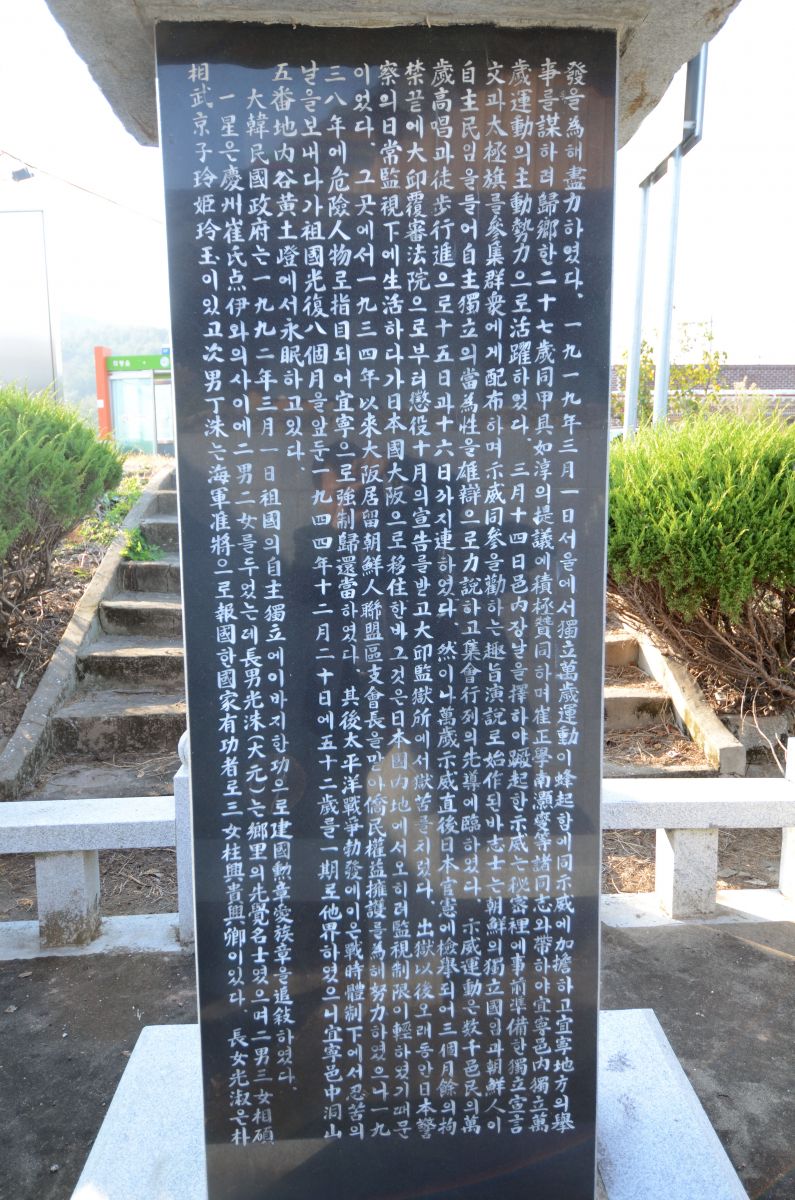 發을為해盡力하였다. 一九一九年三月一日서울에서獨立萬歲運動이蜂起함에同示威에加擔하고宜寧地方의擧
事를謀하려歸鄕한二十七歲同甲具如淳의提議에積極贊同하며崔正學南灝燮等諸同志와帶하야宜寧邑內獨立萬
歲運動의主動勢力으로活躍하였다. 三月十四日邑內장날을擇하야蹶起한示威는秘密裡에事前準備한獨立宣言
文과太極旗를參集群衆에게配布하며示威同參을勸하는趣旨演說로始作된바志士는朝鮮의獨立國임과朝鮮人이
自主民임을들어自主獨立의當為性을雄辯으로力說하고集會行列의先導에臨하였다. 示威運動은数千邑民의萬
歲高唱과徒步行進으로十五日과十六日까지連하였다. 然이나萬歲示威直後日本官憲에檢擧되어三個月餘의拘
禁끝에大邱覆審法院으로부터懲役十月의宣告를받고大邱監獄所에서獄苦를치렀다. 出獄以後오래동안日本警
察의日常監視下에生活하다가日本國大阪으로移住한바그것은日本國內地에서오히려監視制限이輕하였기때문
이었다. 그곳에서一九三四年以來大阪居留朝鮮人聯盟區支會長을맡아僑民權益擁護를為해努力하였으나一九
三八年에危險人物로指目되어宜寧으로強制歸還當하였다 其後太平洋戰爭勃發에이은戰時體制下에서忍苦의
날을보내다가祖國光復八個月을앞둔一九四四年十二月二十日에五十二歲를一期로他界하였으니宜寧邑中洞山
五番地內谷黃土嶝에서永眠하고있다.
大韓民國政府는一九九二年三月一日祖國의自主獨立에이바지한功으로建國勲章愛族章을追敍하였다.
一星은慶州崔氏点伊와의사이에二男二女를두었는데長男光洙(大元)는鄕里의先覺名士였으며二男三女相碩
相武京子玲姬玲玉이있고次男丁洙는海軍准將으로報國한國家有功者로三女柱興貴興卿이있다. 長女光淑은朴